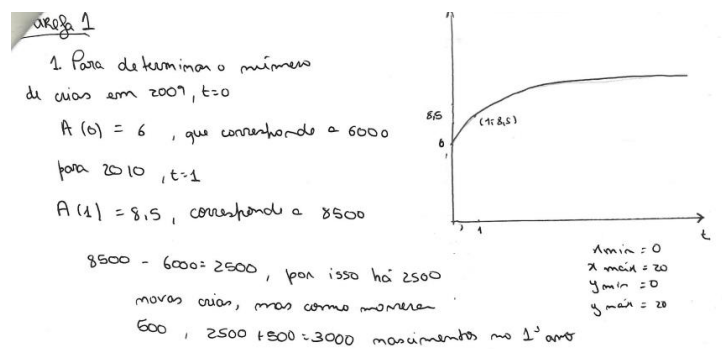 arefa 1
1. Para determinar o número
de crias em 2009, t=0
A(0) = 6 , que corresponde a 6000
para 2010 , t=1
A(1) = 8,5 , corresponde a 8500
8500 - 6000 = 2500 , por isso há 2500
novas crias, mas como morreram
500 , 2500 + 500 = 3000 nascimentos no 1º ano
8,5
(1; 8,5)
6
1
t
xmin = 0
x máx = 20
ymin = 0
y máx = 20